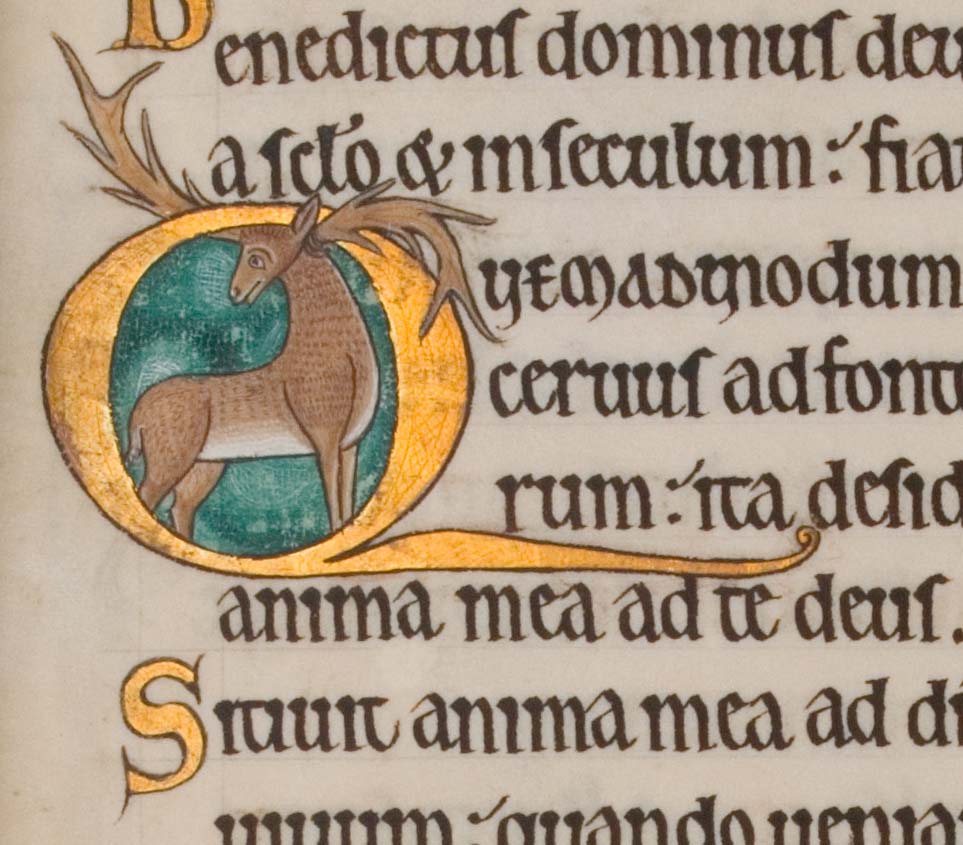 Benedictus dominus deu
a sclo & in seculum : fiat
Quemadmodum
ceruus ad fonte
rum : ita desid
anima mea ad te deus.
Sitiuit anima mea ad di
uiuum : quando uenia